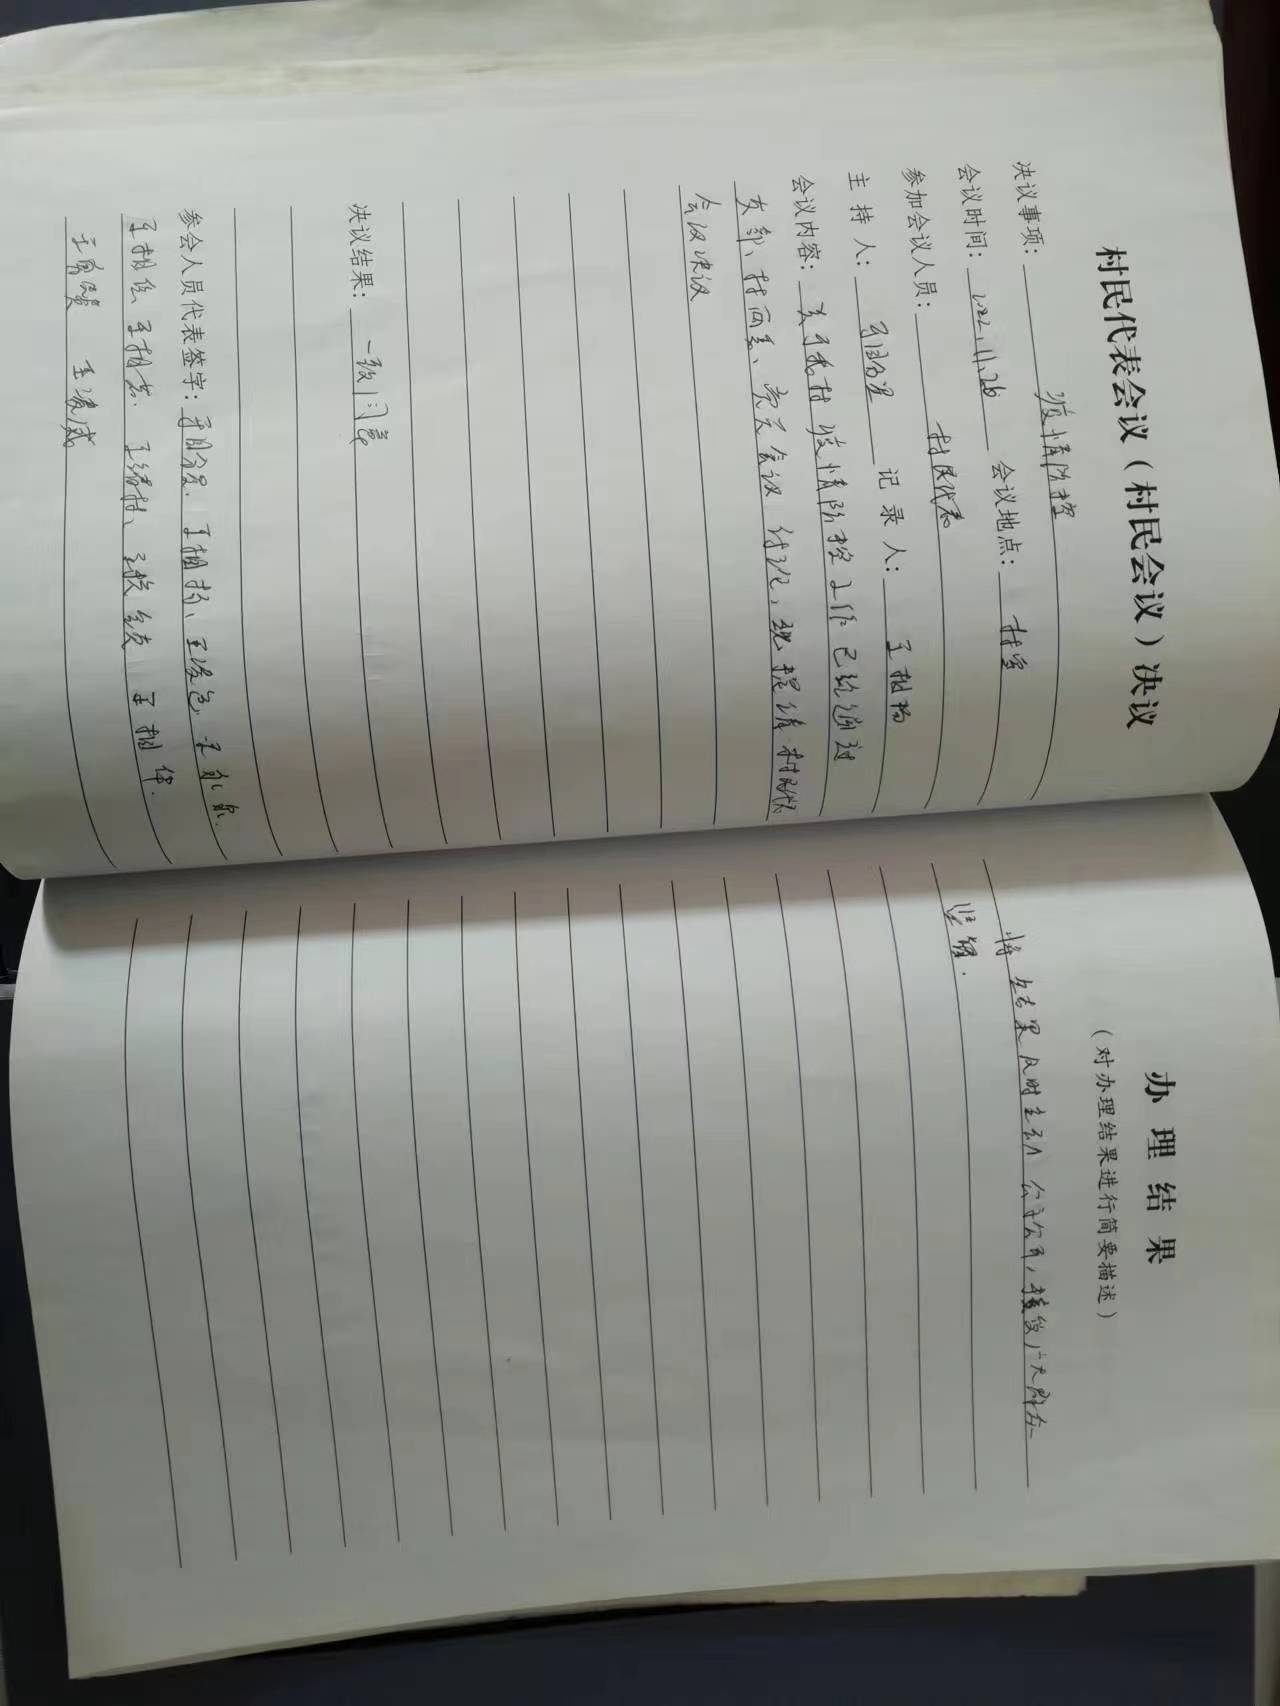 村民代表会议（村民会议）决议
决议事项： 疫情防控
会议时间： 2022.11.26 会议地点： 村室
参加会议人员： 村民代表
主 持 人： 记 录 人： 王相杨
会议内容： 关于我村疫情防控工作已经通过
支部、村两委、党员会议讨论，现提请村民代表
会议决议
决议结果： 一致同意
参会人员代表签字： 王相杨、
王相
王凌威
办 理 结 果
（对办理结果进行简要描述）
将结果及时主动公示公开，接受广大群众
监督．